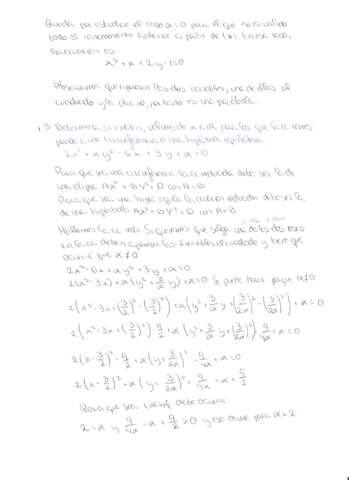 Queda por estudiar el caso α=0 para el que no es válido
todo el razonamiento anterior a partir de (*). En ese caso,
la ecuación es
x² + x + 2y - 1 = 0
Observamos que aparecen las dos variables, una de ellas al
cuadrado y la otra no, por tanto es una parábola.
3 Determina, si existen, valores de α∈ℝ para los que la ec corres-
ponde a una circunferencia o una hipérbola equilátera.
2x² + αy² - 6x + 3y + α = 0
Para que sea una circunferencia la ec reducida debe ser la de
una elipse Ax² + By² = D con A = B
Para que sea una hipér equil la ecuación reducida debe ser la
de una hipérbola Ax² - By² = D con A = B
o una u otra
Hallemos la ec red. Si queremos que salga una de las dos cosas
en la ec deben aparecer las 2 variables al cuadrado y tiene que
ocurrir que α≠0
2x² - 6x + αy² + 3y + α = 0
2(x² - 3x) + α(y² + 3/α y) + α = 0 Se puede hacer porque α≠0
2(x² - 3x + (3/2)² - (3/2)²) + α(y² + 3/α y + (3/2α)² - (3/2α)²) + α = 0
2(x² - 3x + (3/2)²) - 9/2 + α(y² + 3/α y + (3/2α)²) - 9/4α + α = 0
2(x - 3/2)² - 9/2 + α(y + 3/2α)² - 9/4α + α = 0
2(x - 3/2)² + α(y + 3/2α)² = 9/4α - α + 9/2
Para que sea circunf debe ocurrir:
2 = α y 9/4α - α + 9/2 > 0 y eso ocurre para α = 2.